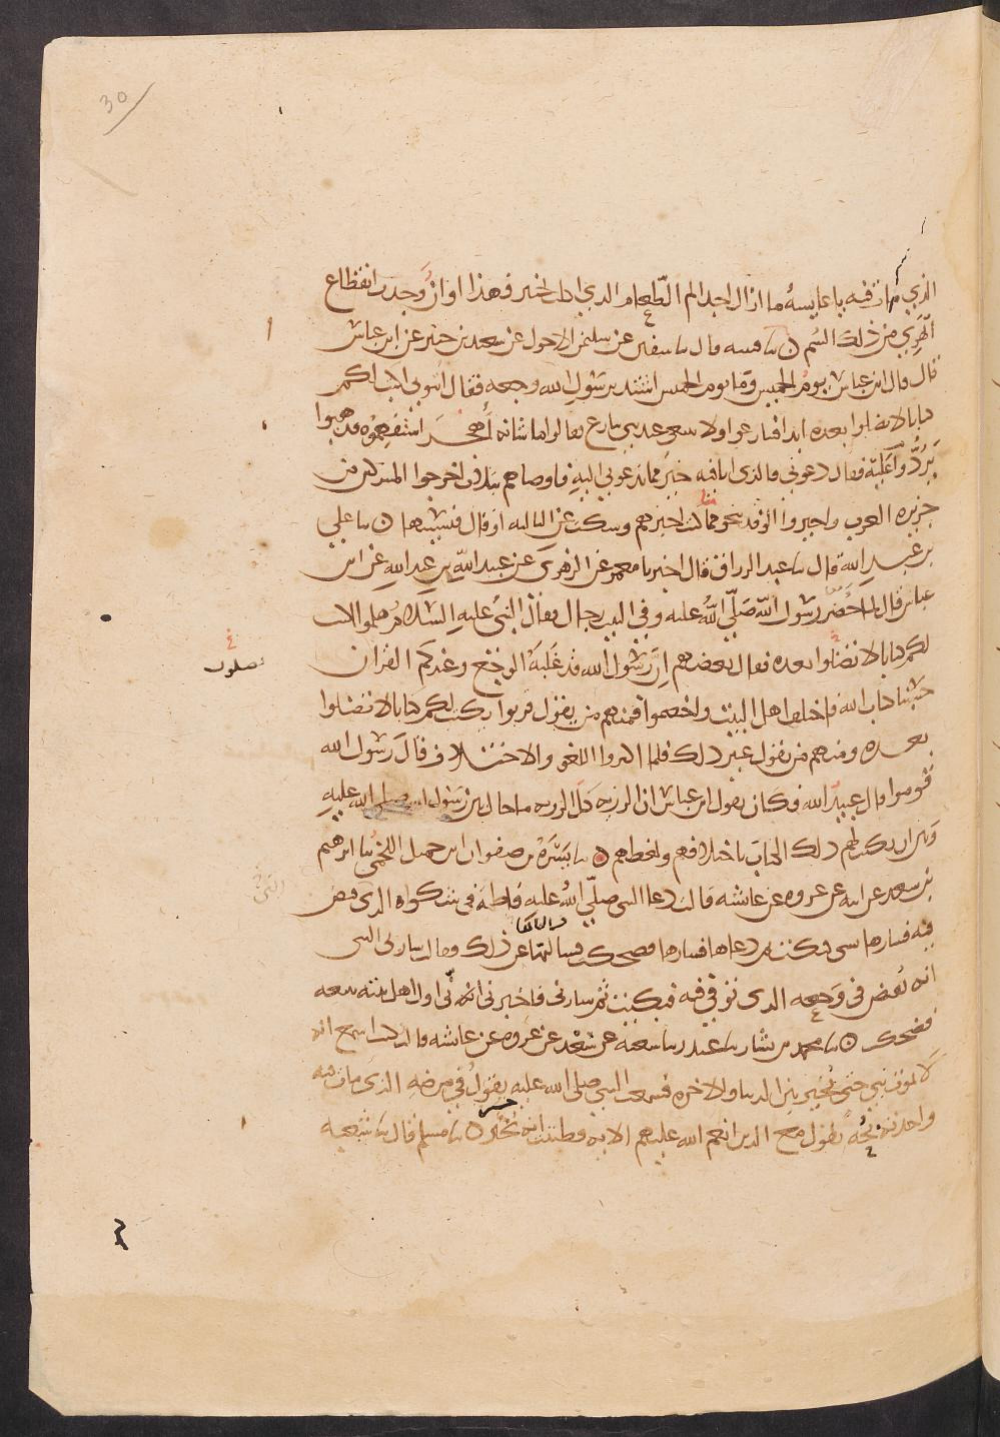 30
الذي مات فيه يا عايشة ما ازال اجد الم الطعام الذي اكلت بخيبر فهذا اوان وجدت انقطاع
ابهري من ذلك السم ن ثنا قتيبة قال ثنا سفين عن سليمن الاحول عن سعيد بن جبير عن ابن عباس
قال قال ابن عباس يوم الخميس وما يوم الخميس اشتد برسول الله وجعه فقال ائتوني اكتب لكم
كتابا لا تضلوا بعده ابدا فتنازعوا ولا ينبغي عند نبي تنازع فقالوا ما شانه أهجر استفهموه فذهبوا
يردوا عليه فقال دعوني فالذي انا فيه خير مما تدعوني اليه فاوصاهم بثلاث اخرجوا المشركين من
جزيرة العرب واجيزوا الوفد بنحو مما كنت اجيزهم وسكت عن الثالثه او قال فنسيتها ن ثنا علي
بن عبد الله قال ثنا عبد الرزاق قال اخبرنا معمر عن الزهري عن عبيد الله بن عبد الله عن ابن
عباس قال لما حضر رسول الله صلى الله عليه وفي البيت رجال فقال النبي عليه السلام هلموا اكتب
لكم كتابا لا تضلوا بعده فقال بعضهم ان رسول الله قد غلبه الوجع وعندكم القران
تضلون
حسبنا كتاب الله فاختلف اهل البيت واختصموا فمنهم من يقول قربوا يكتب لكم كتابا لا تضلوا
بعده ومنهم من يقول غير ذلك فلما اكثروا اللغو والاختلاف قال رسول الله
قوموا قال عبيد الله فكان يقول ابن عباس ان الرزيه كل الرزيه ما حال بين رسول الله صلى الله عليه
وبين ان يكتب لهم ذلك الكتاب باختلافهم ولغطهم ن ثنا يسرة بن صفوان ابن جميل اللخمي ثنا ابرهيم
بن سعد عن ابيه عن عروه عن عائشه قالت دعا النبي صلى الله عليه فاطمة في شكواه الذي قبض
فيه فسارها بشي فبكت ثم دعاها فسارها فضحكت فسالتها عن ذلك فقالت سارني النبي
انه يقبض في وجعه الذي توفي فيه فبكيت ثم سارني فاخبرني اني اول اهل بيته يتبعه
فضحكت ن ثنا محمد بن بشار ثنا غندر ثنا شعبه عن سعد عن عروه عن عائشه قالت كنت اسمع انه
لا يموت نبي حتى يخير بين الدنيا والاخره فسمعت النبي صلى الله عليه يقول في مرضه الذي مات فيه
واخذته بحه يقول مع الذين انعم الله عليهم الايه فظننت انه خير ن ثنا مسلم قال ثنا شعبه